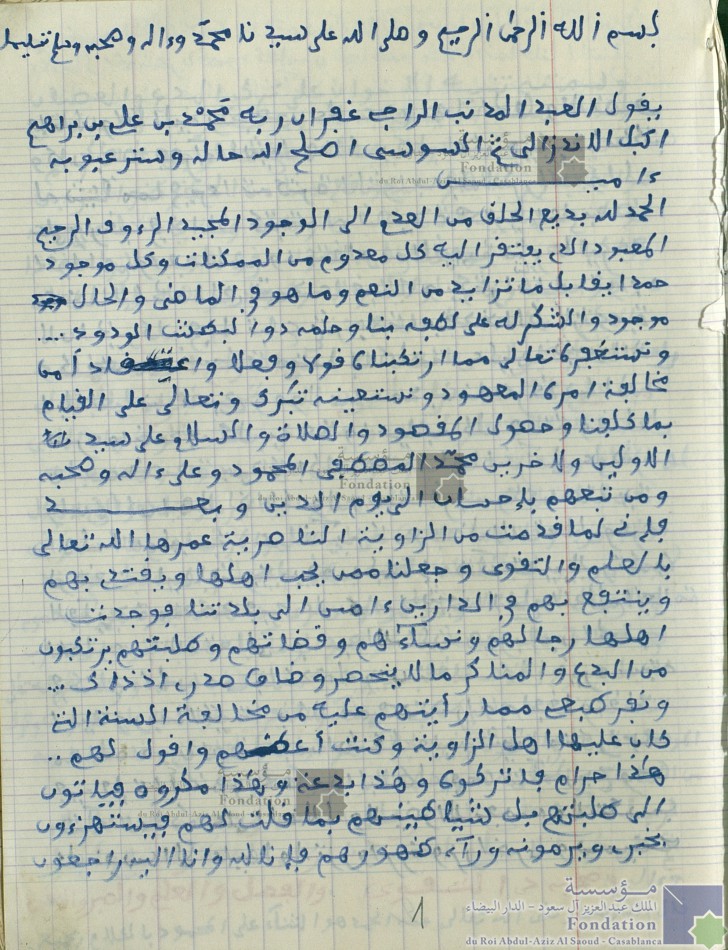 بسم الله الرحمن الرحيم وصلى الله على سيدنا محمد وءاله وصحبه وسلم تسليما
يقول العبد المذنب الراجي غفران ربه محمد بن علي بن براهيم
الاندزالي السوسي اصلح الله حاله وستر عيوبه
ءاميــــــن
الحمد لله بديع الخلق من العدم الى الوجود المجيد الرءوف الرحيم
المعبود الذي يفتقر اليه كل معدوم من الممكنات وكل موجود
حمدا يقابل ما تزايد من النعم وما هو في الماضى والحال
موجود والشكر له على لطفه بنا وحلمه ذو البطش الودود ...
ونستغفره تعالى مما ارتكبناه قولا وفعلا واعتقادا من
مخالفة امره المعهود ونستعينه تبرك وتعالى على القيام
بما كلفنا وحصول المقصود والصلاة والسلام على سيد
الاولين ولاخرين محمد المصطفى المحمود وعلى ءاله وصحبه
ومن تبعهم بإحسان الى يوم الدين وبعــــــد
فإني لما قدمت من الزاوية الناصرية عمرها الله تعالى
بالعلم والتقوى وجعلنا ممن يحب اهلها ويقتدي بهم
وينتفع بهم في الدارين ءامين الى بلادتنا فوجدت
اهلها رجالهم ونساءهم وقضاتهم وطلبتهم يرتكبون
من البدع والمناكر ما لا ينحصر وضاق صدري اذ ذاك ...
ونفر طبعي مما رأيتهم عليه من مخالفة السنة التي
كان عليها اهل الزاوية وكنت أعظهم واقول لهم ..
هذا حرام فاتركوه وهذا بدعة وهذا مكروه فياتون
الى طلبتهم بل شياطينهم بما قلت لهم فيستهزءون
بخبري ويرمونه وراء ظهورهم فإنا لله وانا اليه راجعون
1
مؤسسة
الملك عبد العزيز آل سعود - الدار البيضاء
Fondation
du Roi Abdul-Aziz Al Saoud - Casablanca